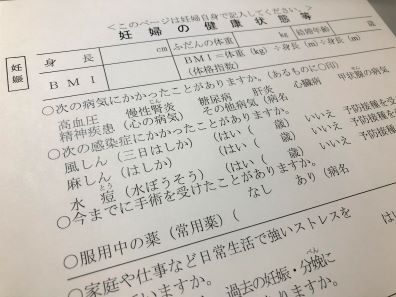 <このページは妊婦自身で記入してください。>
妊婦の健康状態等
妊娠
身長 cm ふだんの体重 kg 結婚年齢 歳
BMI BMI=体重(kg)÷身長(m)÷身長(m)
(体格指数)
○次の病気にかかったことがありますか。(あるものに○印)
高血圧 慢性腎炎 糖尿病 肝炎 心臓病 甲状腺の病気
じん
精神疾患(心の病気) その他病気(病名
○次の感染症にかかったことがありますか。
風しん(三日はしか) (はい( 歳) いいえ 予防接種を受
麻しん(はしか) (はい( 歳) いいえ 予防接種を受
とう
水痘(水ぼうそう) (はい( 歳) いいえ 予防接種を
○今までに手術を受けたことがありますか。
なし あり(病名
○服用中の薬(常用薬)(
○家庭や仕事など日常生活で強いストレスを
はい
いますか。
べん
過去の妊娠・分娩に